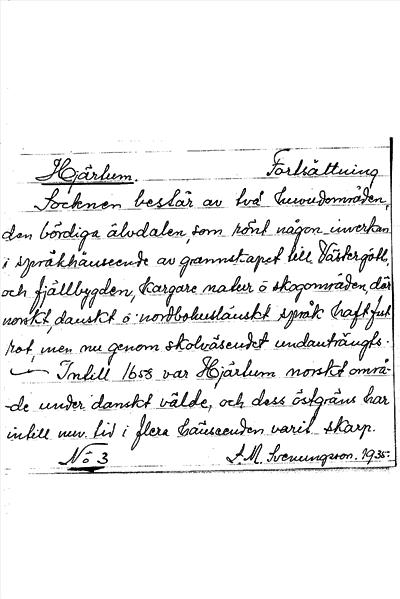 Hjärtum. Fortsättning
Socknen består av två huvudområden,
den bördiga älvdalen, som rönt någon inverkan
i språkhänseende av grannskapet till Västergötl.
och fjällbygden, kargare natur o skogområden, där
norskt, danskt o. nordbohuslänskt språk haft fut
rot, men nu genom skolväsendet undanträngts.
Intill 1658 var Hjärtum norskt områ-
de under danskt välde, och dess östgräns har
intill nuv. tid i flera hänseenden varit skarp.
No 3 A. M. Svenungsson. 1935.